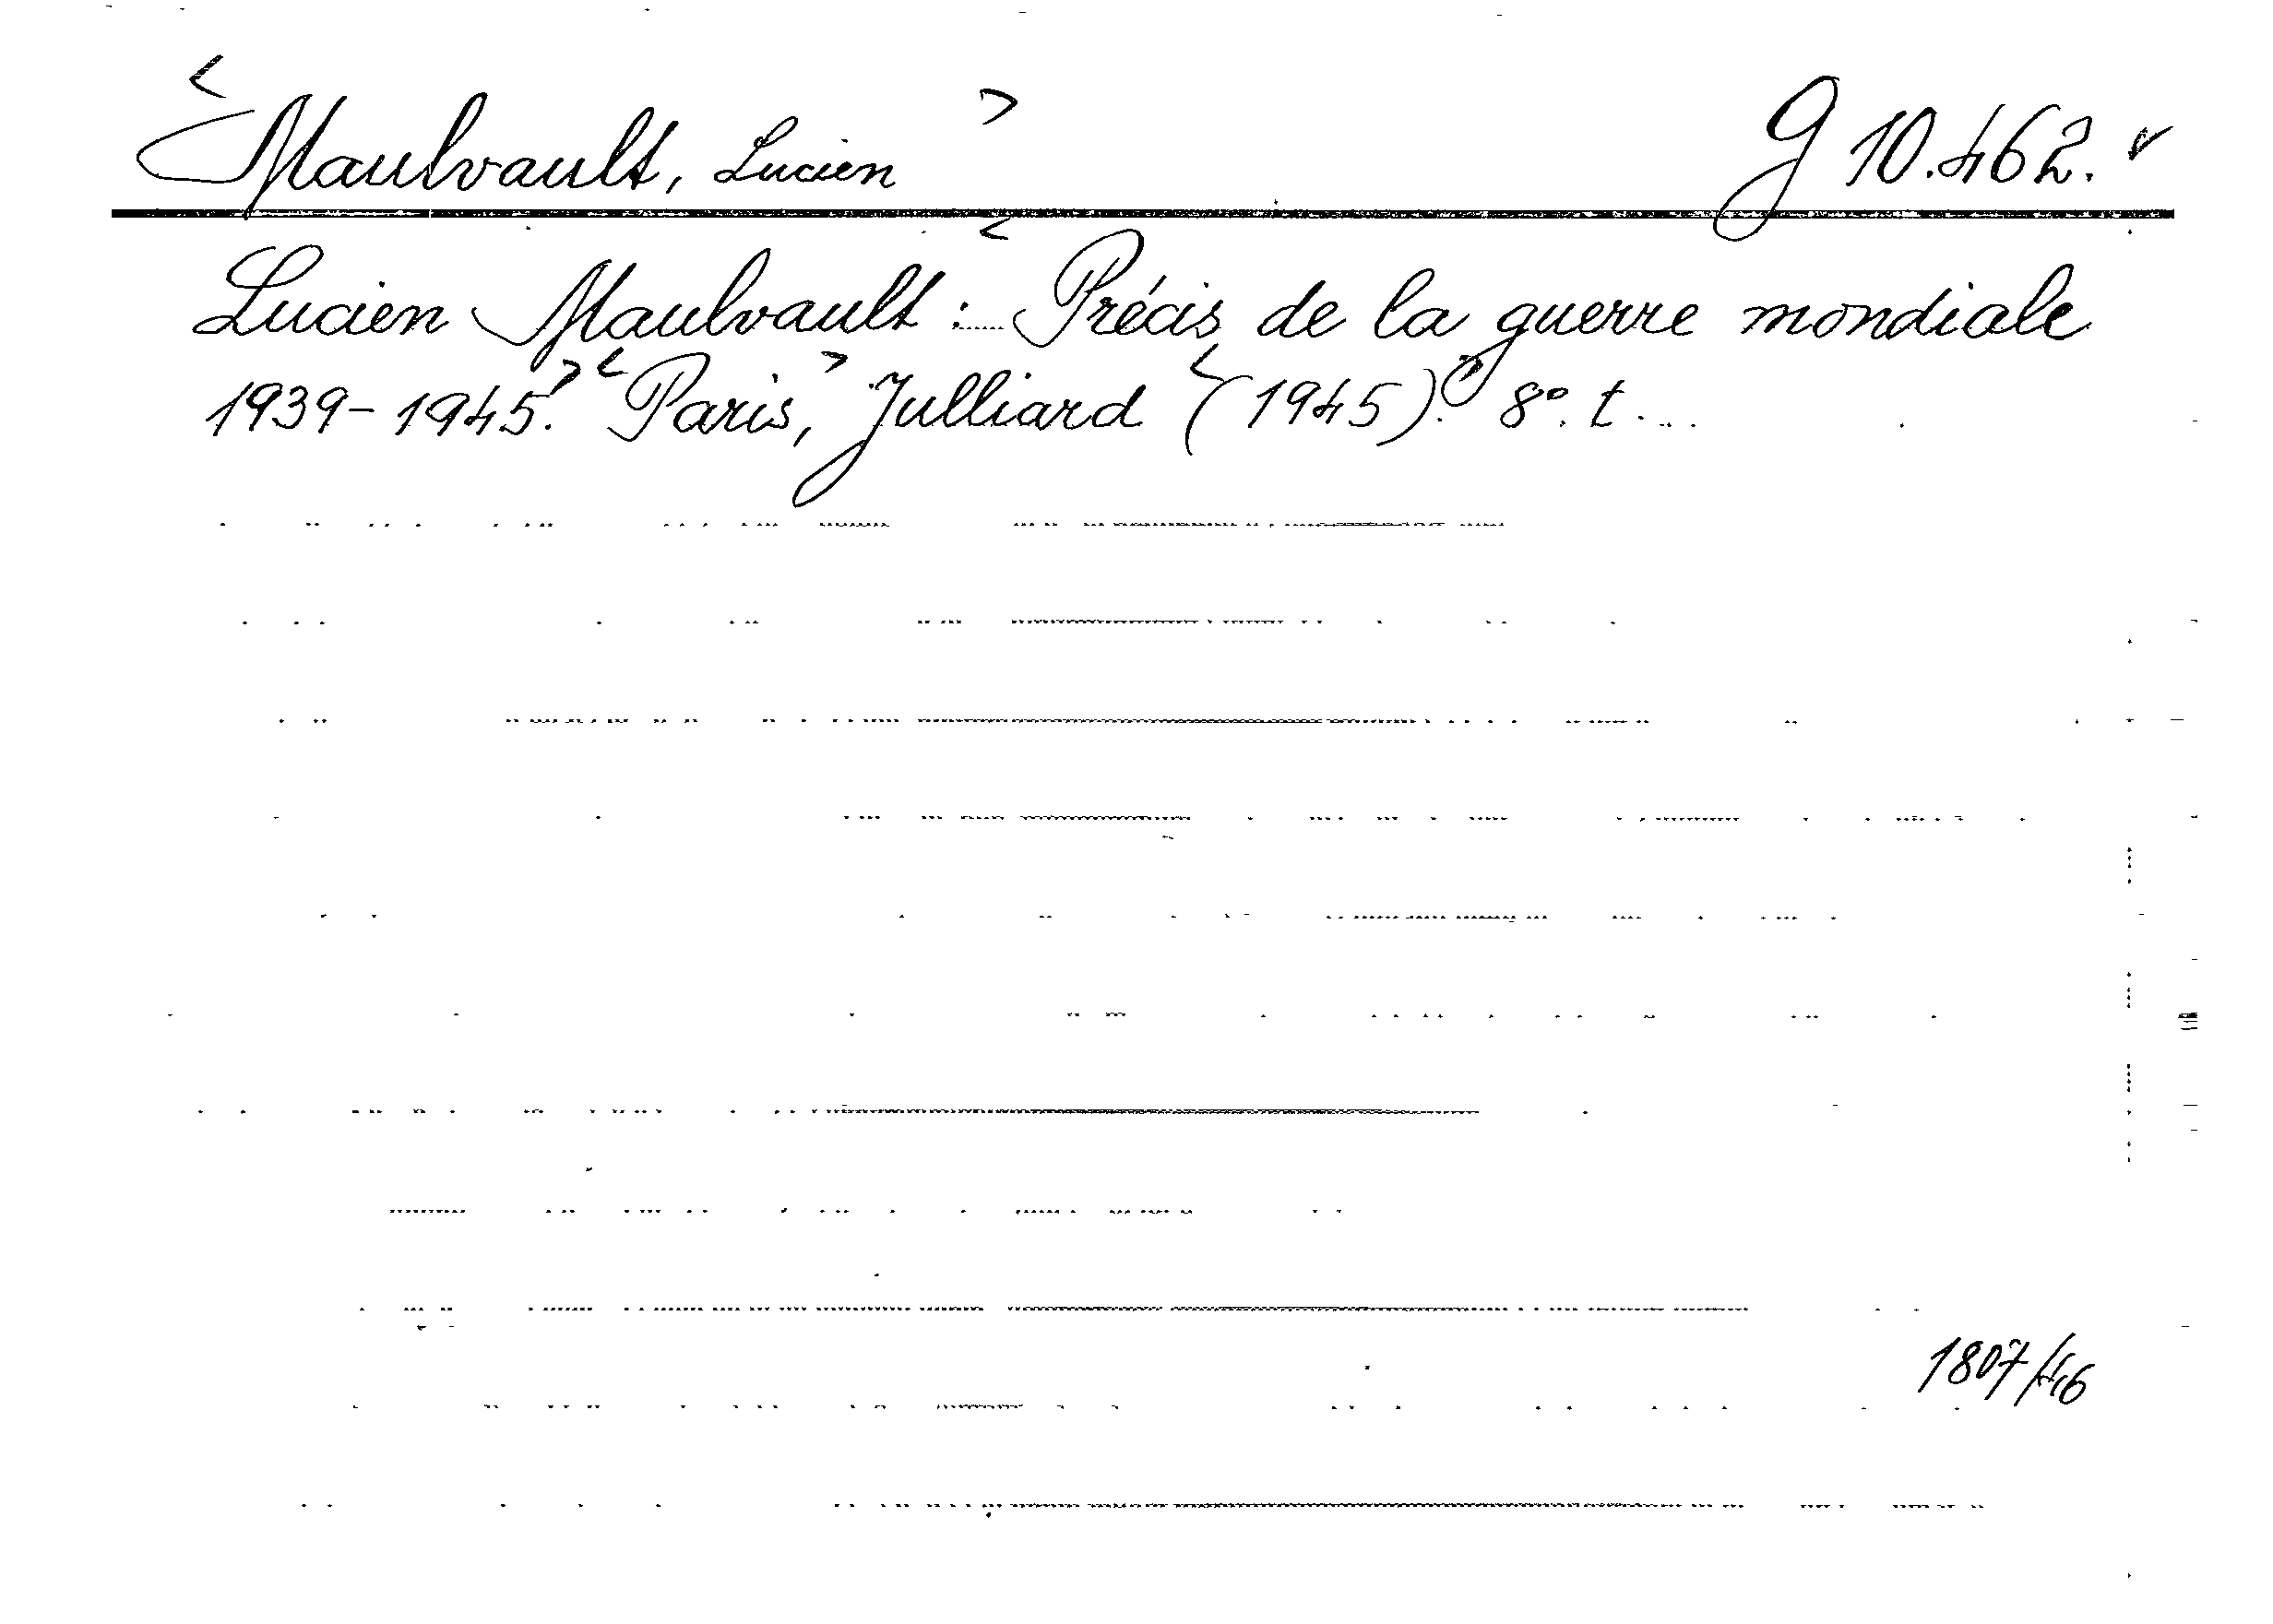 <Maulvault, Lucien> G 10.462. v
Lucien Maulvault: <Précis de la guerre mondiale
1939-1945.> <Paris,> Julliard <(1945).> 8°. t...
1807/46